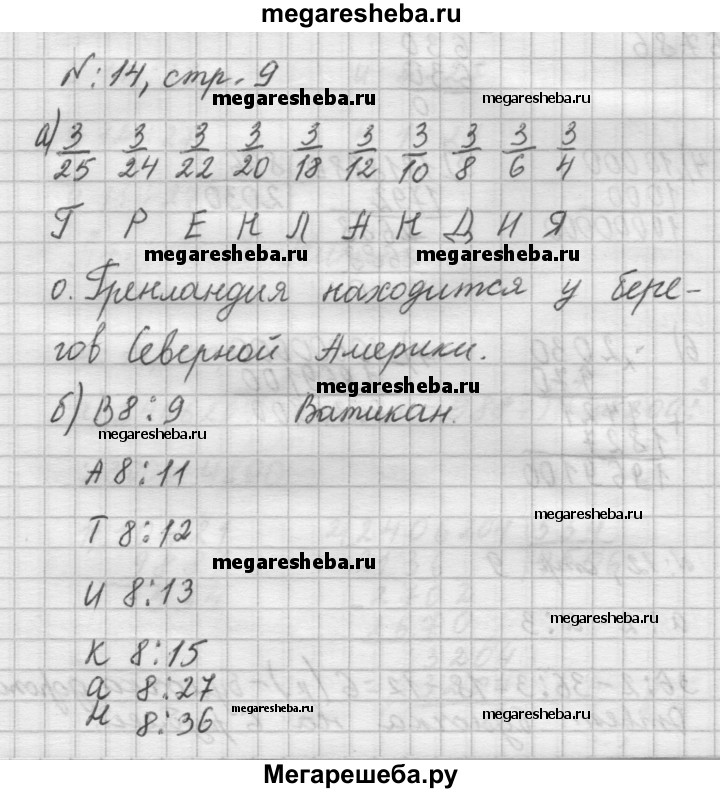 megaresheba.ru
N: 14, стр. 9
megaresheba.ru megaresheba.ru
а) 3/25 3/24 3/22 3/20 3/18 3/12 3/10 3/8 3/6 3/4
Г Р Е Н Л А Н Д И Я
megaresheba.ru megaresheba.ru
о. Гренландия находится у бере-
гов Северной Америки.
megaresheba.ru
б) В 8:9 Ватикан.
megaresheba.ru
А 8:11
Т 8:12
megaresheba.ru
megaresheba.ru
И 8:13
megaresheba.ru
К 8:15
а 8:27
Н 8:36
megaresheba.ru megaresheba.ru
Мегарешеба.ру